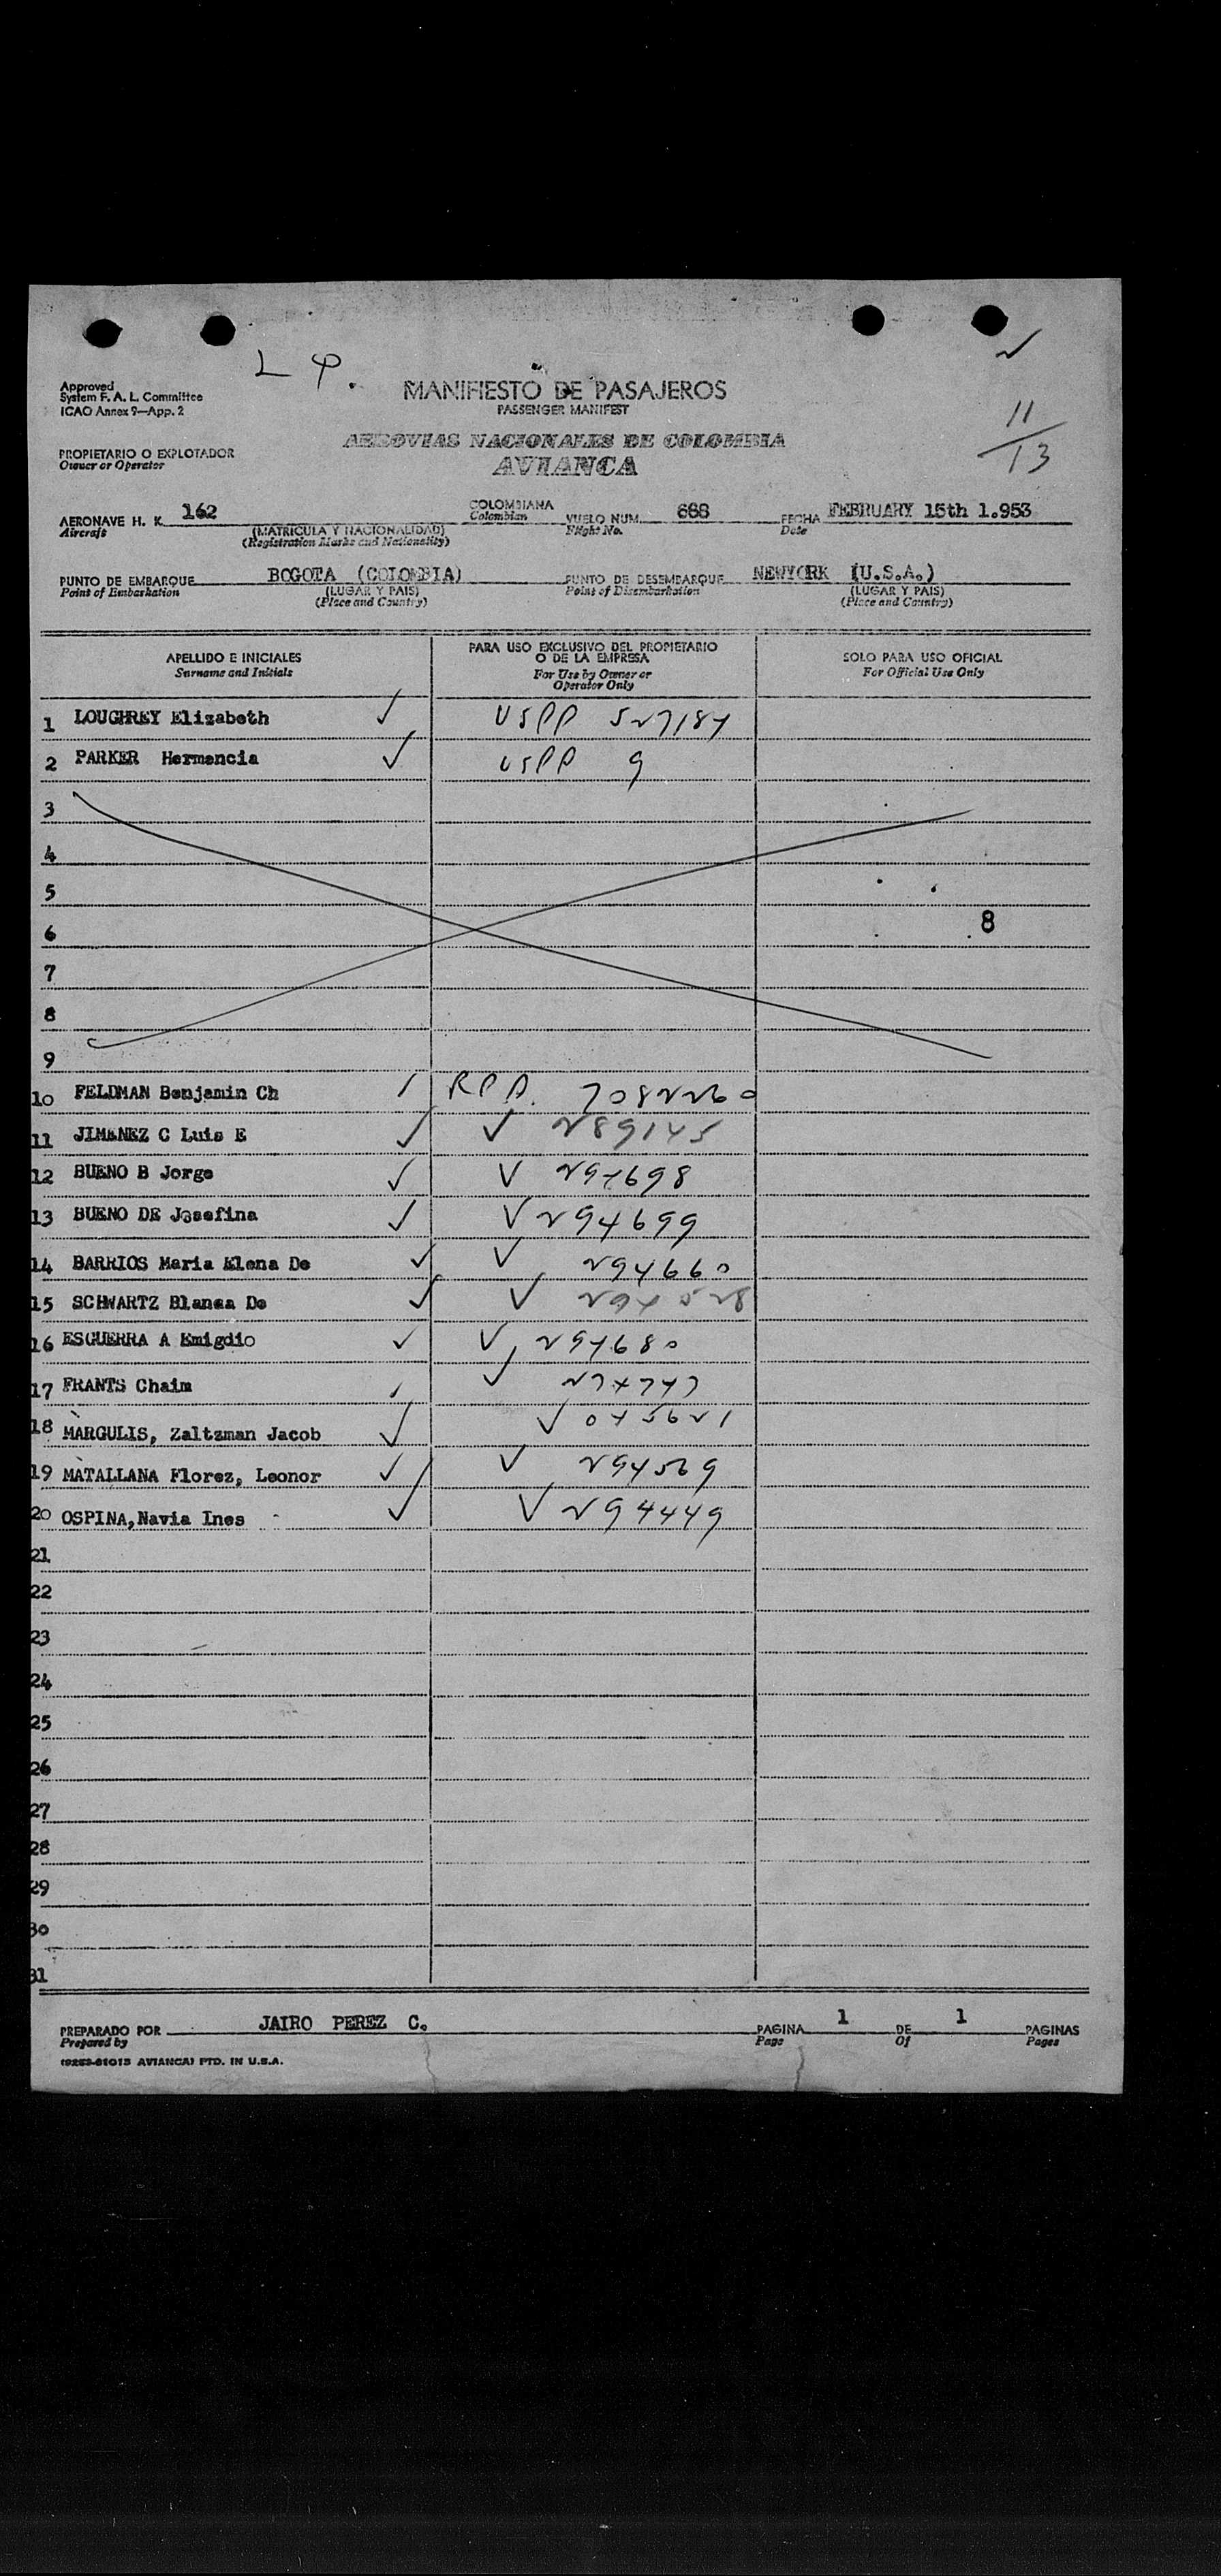 L P.
Approved
System F. A. L. Committee
ICAO Annex 9—App. 2
MANIFIESTO DE PASAJEROS
PASSENGER MANIFEST
11/13
PROPIETARIO O EXPLOTADOR
Owner or Operator
AEROVIAS NACIONALES DE COLOMBIA
AVIANCA
AERONAVE H. K. 162 COLOMBIANA VUELO NUM. 688 FECHA FEBRUARY 15th 1.953
Aircraft (MATRICULA Y NACIONALIDAD) Colombian Flight No. Date
(Registration Marks and Nationality)
PUNTO DE EMBARQUE BOGOTA (COLOMBIA) PUNTO DE DESEMBARQUE NEWYORK (U.S.A.)
Point of Embarkation (LUGAR Y PAIS) Point of Disembarkation (LUGAR Y PAIS)
(Place and Country) (Place and Country)
APELLIDO E INICIALES PARA USO EXCLUSIVO DEL PROPIETARIO O DE LA EMPRESA SOLO PARA USO OFICIAL
Surname and Initials For Use by Owner or Operator Only For Official Use Only
1 LOUGHREY Elizabeth ✓ USPP 527184
2 PARKER Hermencia ✓ USPP 9
3
4
5
6 8
7
8
9
10 FELDMAN Benjamin Ch RPP. 7082260
11 JIMANEZ C Luis E ✓ ✓ 289145
12 BUENO B Jorge ✓ ✓ 294698
13 BUENO DE Josefina ✓ ✓ 294699
14 BARRIOS Maria Elena De ✓ ✓ 294660
15 SCHWARTZ Blanca De ✓ ✓
16 ESGUERRA A Emigdio ✓ ✓ 294680
17 FRANTS Chaim ✓
18 MARGULIS, Zaltzman Jacob ✓ ✓ 045621
19 MATALLANA Florez, Leonor ✓ ✓ 294569
20 OSPINA,Navia Ines ✓ ✓ 294449
21
22
23
24
25
26
27
28
29
30
31
PREPARADO POR JAIRO PEREZ C. PAGINA 1 DE 1 PAGINAS
Prepared by Page Of Pages
AVIANCA) PTD. IN U.S.A.